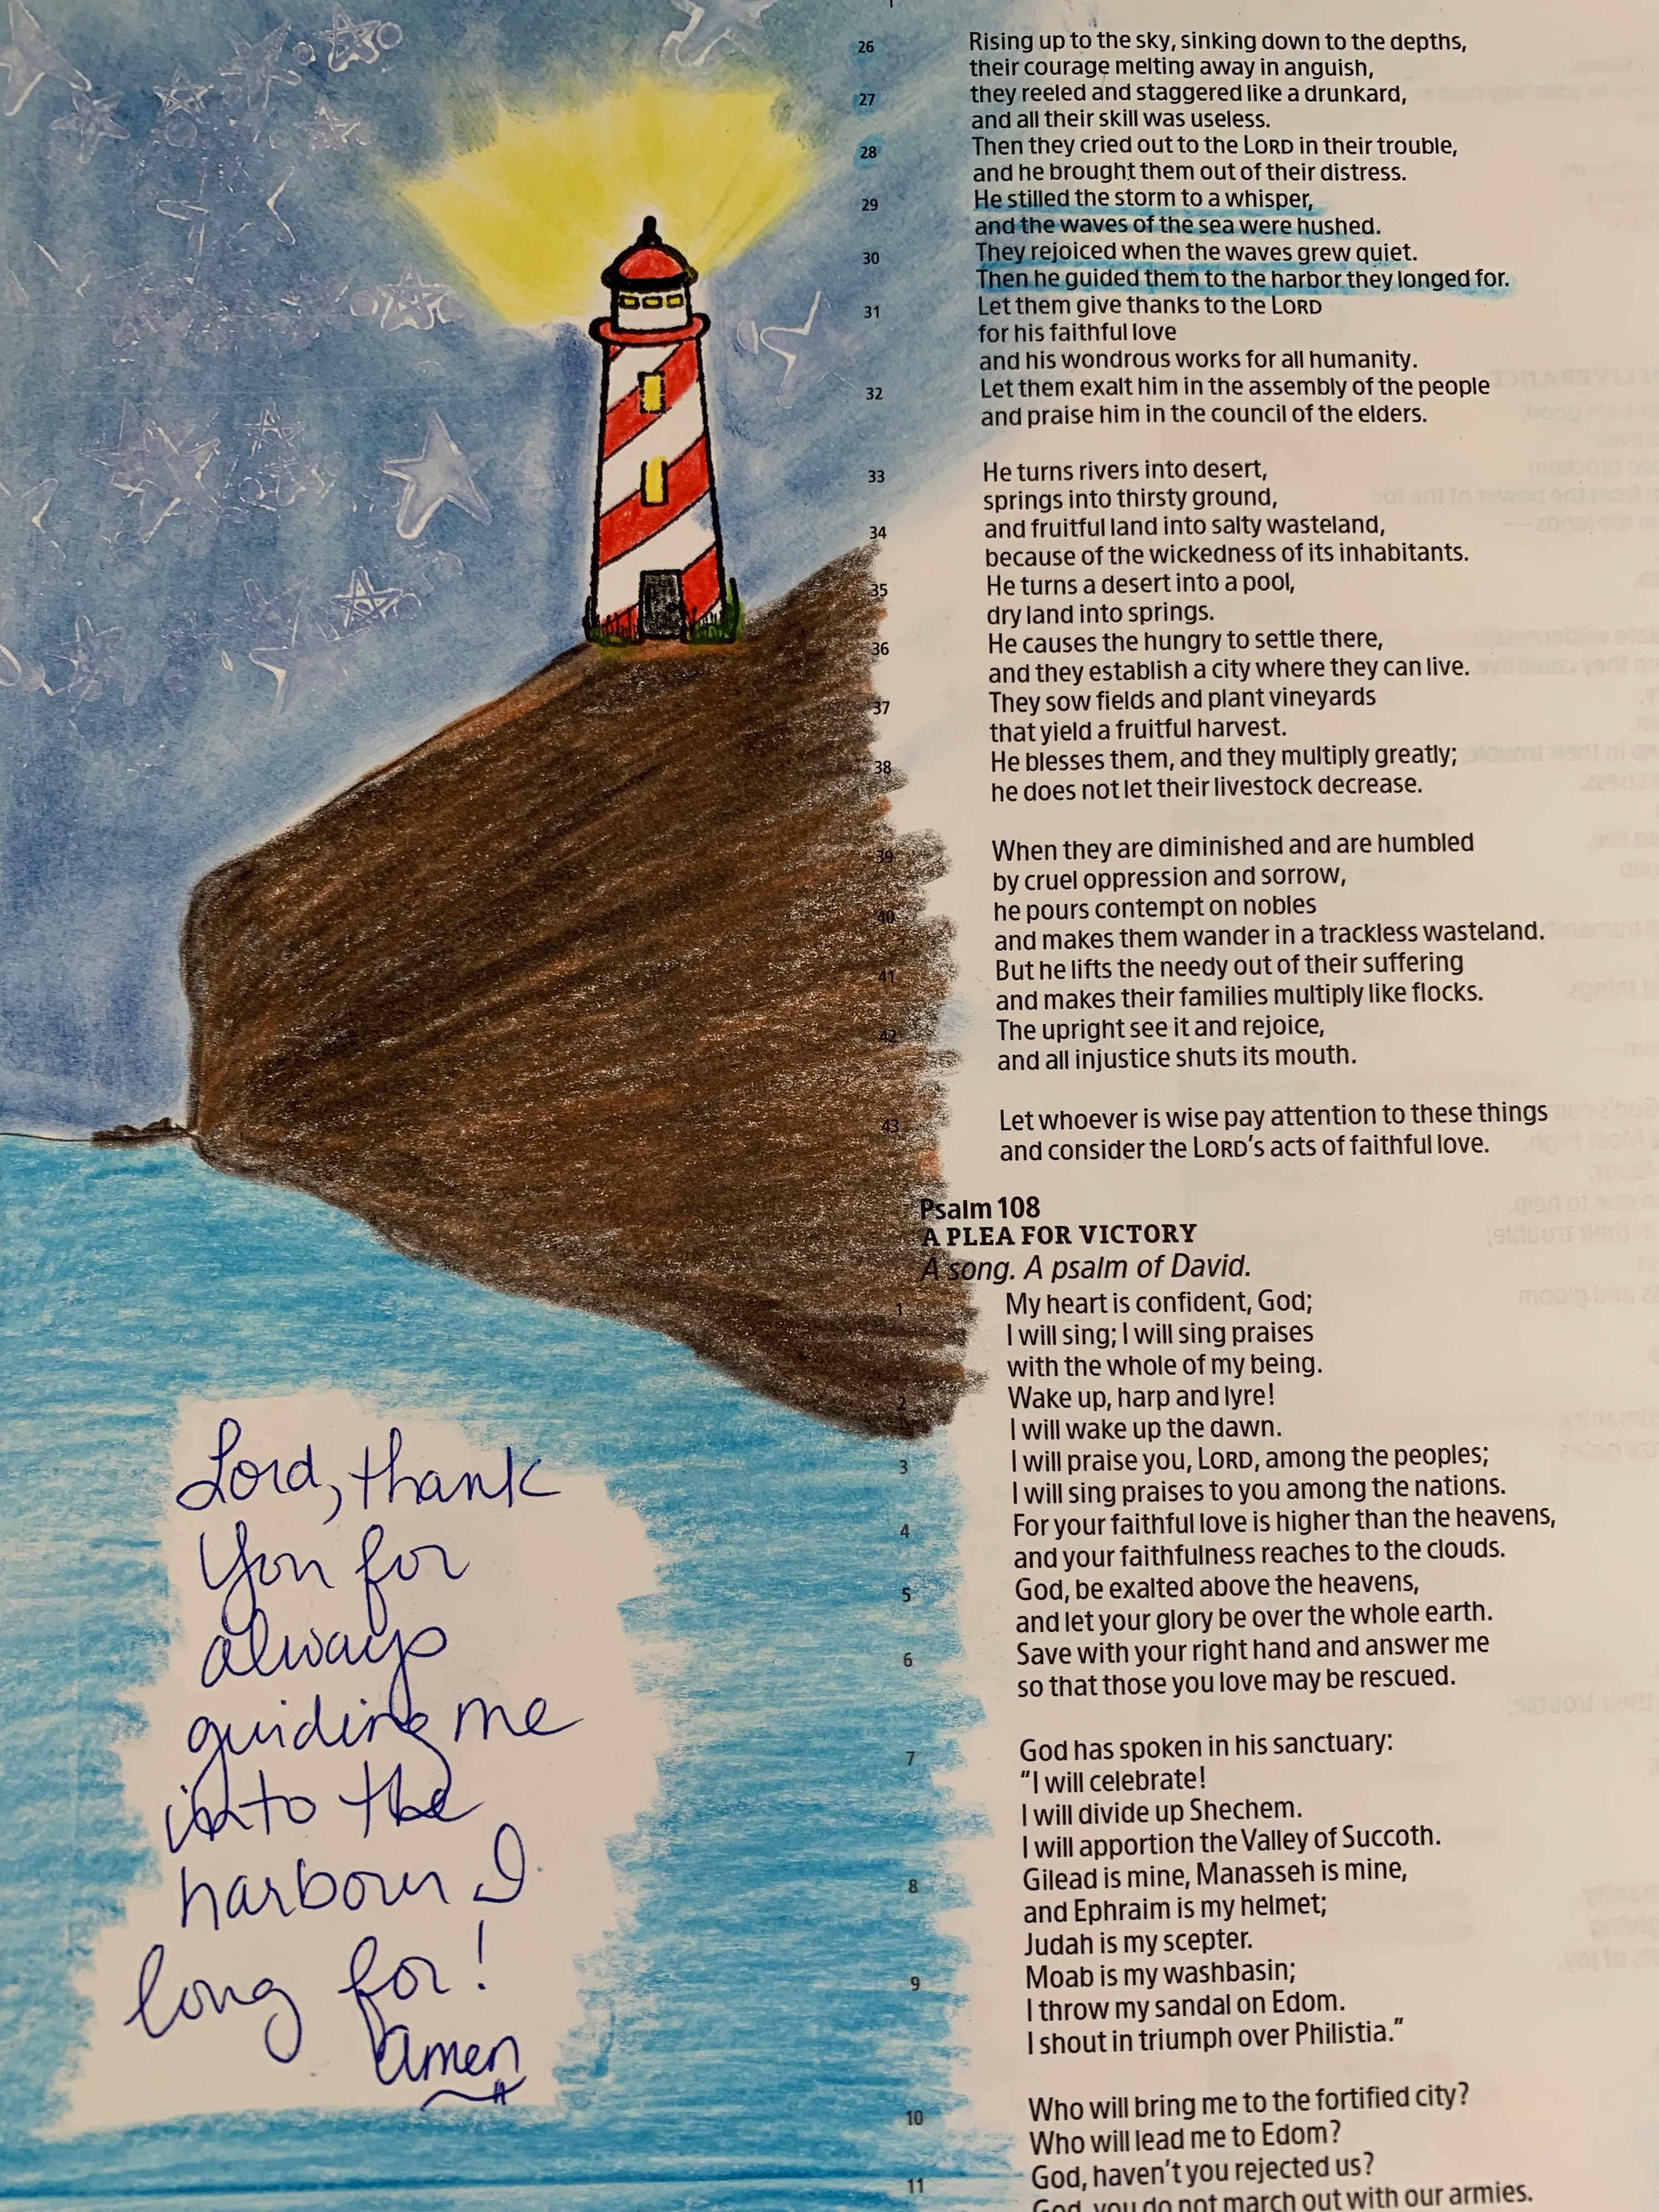 26 Rising up to the sky, sinking down to the depths,
their courage melting away in anguish,
27 they reeled and staggered like a drunkard,
and all their skill was useless.
28 Then they cried out to the LORD in their trouble,
and he brought them out of their distress.
29 He stilled the storm to a whisper,
and the waves of the sea were hushed.
30 They rejoiced when the waves grew quiet.
Then he guided them to the harbor they longed for.
31 Let them give thanks to the LORD
for his faithful love
and his wondrous works for all humanity.
32 Let them exalt him in the assembly of the people
and praise him in the council of the elders.
33 He turns rivers into desert,
springs into thirsty ground,
34 and fruitful land into salty wasteland,
because of the wickedness of its inhabitants.
35 He turns a desert into a pool,
dry land into springs.
36 He causes the hungry to settle there,
and they establish a city where they can live.
37 They sow fields and plant vineyards
that yield a fruitful harvest.
38 He blesses them, and they multiply greatly;
he does not let their livestock decrease.
39 When they are diminished and are humbled
by cruel oppression and sorrow,
40 he pours contempt on nobles
and makes them wander in a trackless wasteland.
41 But he lifts the needy out of their suffering
and makes their families multiply like flocks.
42 The upright see it and rejoice,
and all injustice shuts its mouth.
43 Let whoever is wise pay attention to these things
and consider the LORD's acts of faithful love.
Psalm 108
A PLEA FOR VICTORY
A song. A psalm of David.
1 My heart is confident, God;
I will sing; I will sing praises
with the whole of my being.
2 Wake up, harp and lyre!
I will wake up the dawn.
3 I will praise you, LORD, among the peoples;
I will sing praises to you among the nations.
4 For your faithful love is higher than the heavens,
and your faithfulness reaches to the clouds.
5 God, be exalted above the heavens,
and let your glory be over the whole earth.
6 Save with your right hand and answer me
so that those you love may be rescued.
7 God has spoken in his sanctuary:
"I will celebrate!
I will divide up Shechem.
I will apportion the Valley of Succoth.
8 Gilead is mine, Manasseh is mine,
and Ephraim is my helmet;
Judah is my scepter.
9 Moab is my washbasin;
I throw my sandal on Edom.
I shout in triumph over Philistia."
10 Who will bring me to the fortified city?
Who will lead me to Edom?
11 God, haven't you rejected us?
God, you do not march out with our armies.
Lord, thank
You for
always
guiding me
into the
harbour I
long for!
Amen